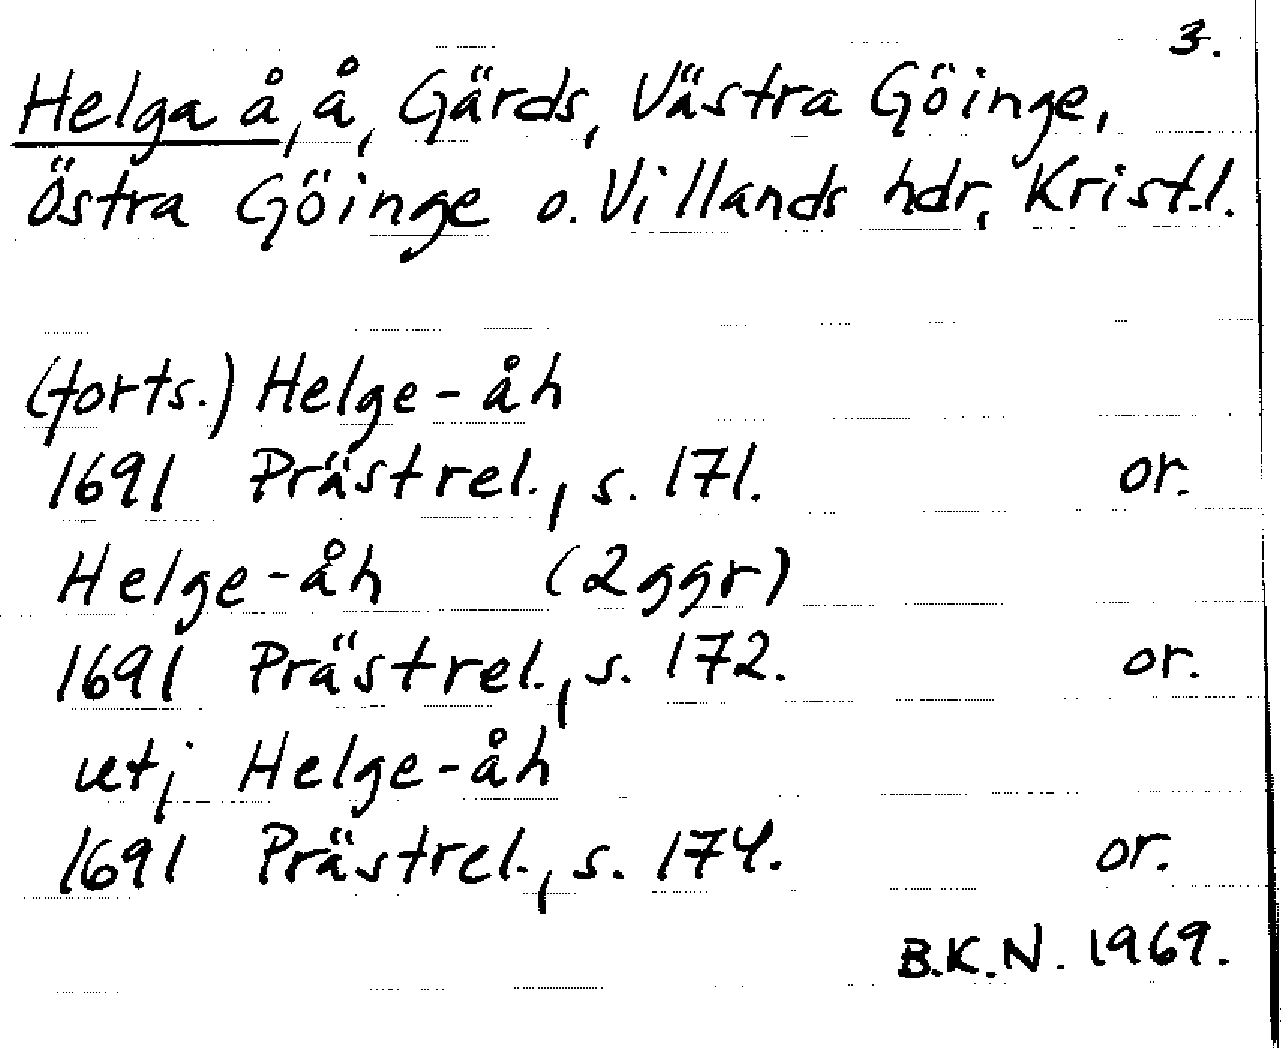 3.
Helga å, å, Gärds, Västra Göinge,
Östra Göinge o. Villands hdr, Krist.l.
(forts.) Helge-åh
1691 Prästrel., s. 171. or.
Helge-åh (2ggr)
1691 Prästrel., s. 172. or.
utj Helge-åh
1691 Prästrel., s. 174. or.
B.K.N. 1969.